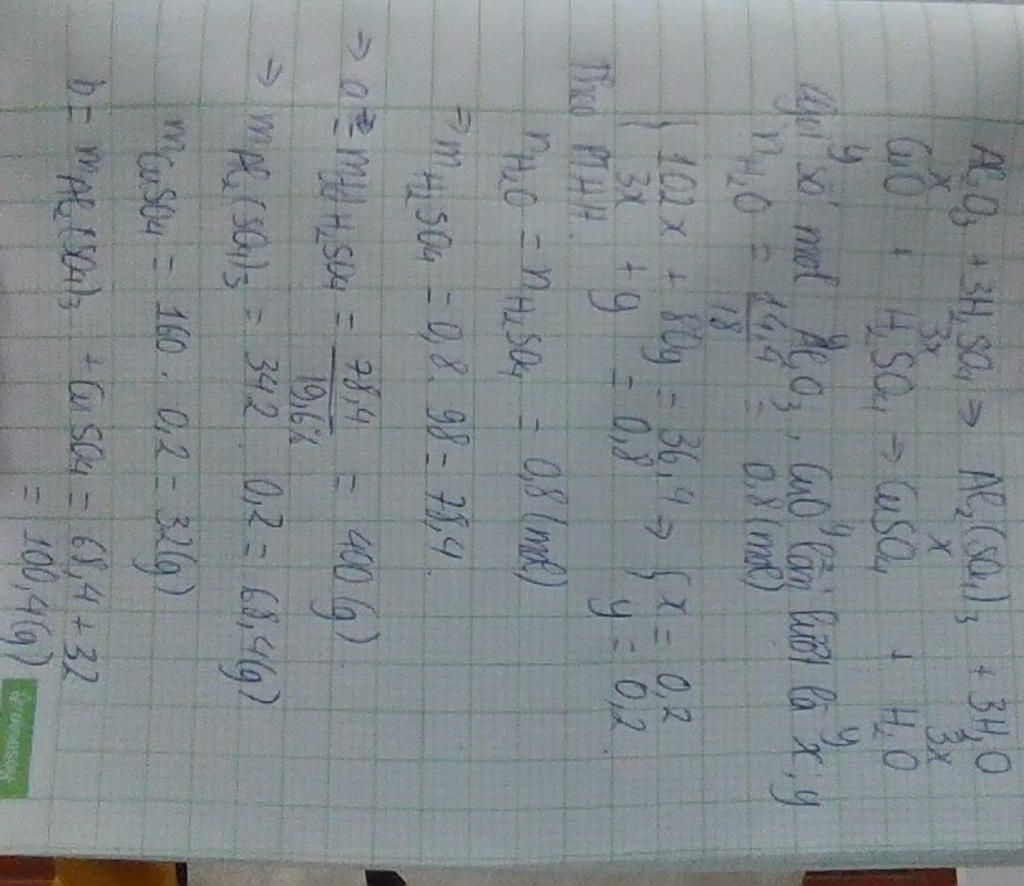 Al₂O₃ + 3H₂SO₄ → Al₂(SO₄)₃ + 3H₂O
x 3x x 3x
CuO + H₂SO₄ → CuSO₄ + H₂O
y y y y
Gọi số mol Al₂O₃, CuO lần lượt là x, y
nH₂O = 14,4 / 18 = 0,8 (mol)
{ 102x + 80y = 36,4 → { x = 0,2
3x + y = 0,8 y = 0,2.
Theo PTHH.
nH₂O = nH₂SO₄ = 0,8 (mol)
→ mH₂SO₄ = 0,8 . 98 = 78,4.
→ a = mddH₂SO₄ = 78,4 / 19,6% = 400 (g).
→ mAl₂(SO₄)₃ = 342 . 0,2 = 68,4 (g)
mCuSO₄ = 160 . 0,2 = 32 (g)
b = mAl₂(SO₄)₃ + CuSO₄ = 68,4 + 32
= 100,4 (g)